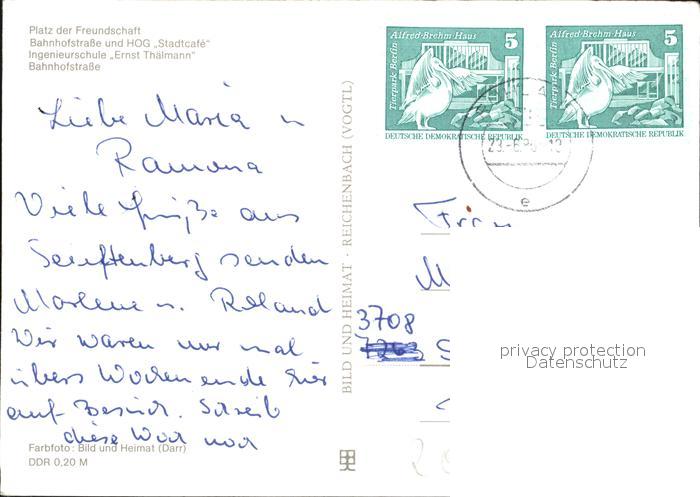 Platz der Freundschaft
Bahnhofstraße und HOG „Stadtcafé“
Ingenieurschule „Ernst Thälmann“
Bahnhofstraße
Liebe Maria u
Ramona
Viele Grüße aus
Senftenberg senden
Marlene u. Roland
Wir waren nur mal
übers Wochenende hier
auf Besuch. Schreib
diese Woch noch
Farbfoto: Bild und Heimat (Darr)
DDR 0,20 M
BILD UND HEIMAT · REICHENBACH (VOGTL)
Alfred-Brehm-Haus 5
Tierpark Berlin
DEUTSCHE DEMOKRATISCHE REPUBLIK
Alfred-Brehm-Haus 5
Tierpark Berlin
DEUTSCHE DEMOKRATISCHE REPUBLIK
e
M
3708
S
privacy protection
Datenschutz